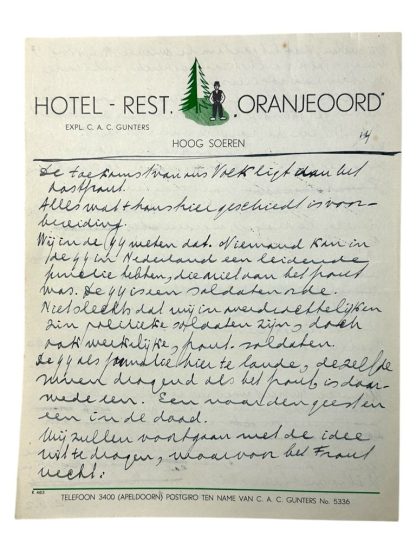 HOTEL - REST. „ORANJEOORD"
EXPL. C. A. C. GUNTERS
HOOG SOEREN
14
De toekomst van ons Volk ligt aan het
oostfront.
Alles wat thans hier geschiedt is voor-
bereiding.
Wij in de ϟϟ weten dat. Niemand kan in
de ϟϟ in Nederland een leidende
functie hebben, die niet aan het front
was. De ϟϟ is een soldaten orde.
Niet slechts dat wij in overdrachtelijken
zin politieke soldaten zijn, doch
ook werkelijke, front soldaten.
De ϟϟ als formatie hier te lande, dezelfde
runen dragend als het front, is daar-
mede een. Een naar den geest en
een in de daad.
Wij zullen voortgaan met de idee
uit te dragen, waarvoor het Front
vecht:
K 483
TELEFOON 3400 (APELDOORN) POSTGIRO TEN NAME VAN C. A. C. GUNTERS No. 5336